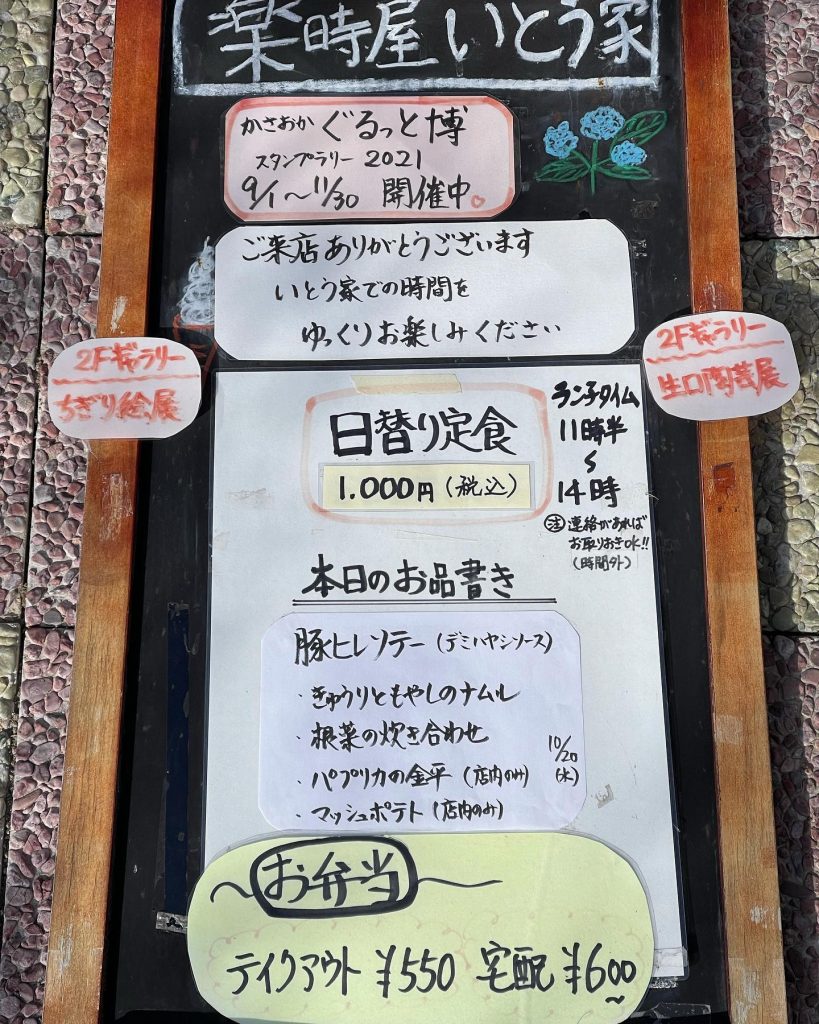 楽時屋いとう家
かさおか ぐるっと博
スタンプラリー 2021
9/1〜11/30 開催中♡
ご来店ありがとうございます
いとう家での時間を
ゆっくりお楽しみください
2Fギャラリー
ちぎり絵展
2Fギャラリー
生口陶芸展
日替り定食
1.000円(税込)
ランチタイム
11時半
〜
14時
注 連絡があれば
お取りおきOK!!
(時間外)
本日のお品書き
豚ヒレソテー(デミハヤシソース)
・きゅうりともやしのナムル
・根菜の炊き合わせ
・パプリカの金平(店内のみ)
・マッシュポテト(店内のみ)
10/20
(水)
〜お弁当〜
テイクアウト ¥550 宅配 ¥600〜